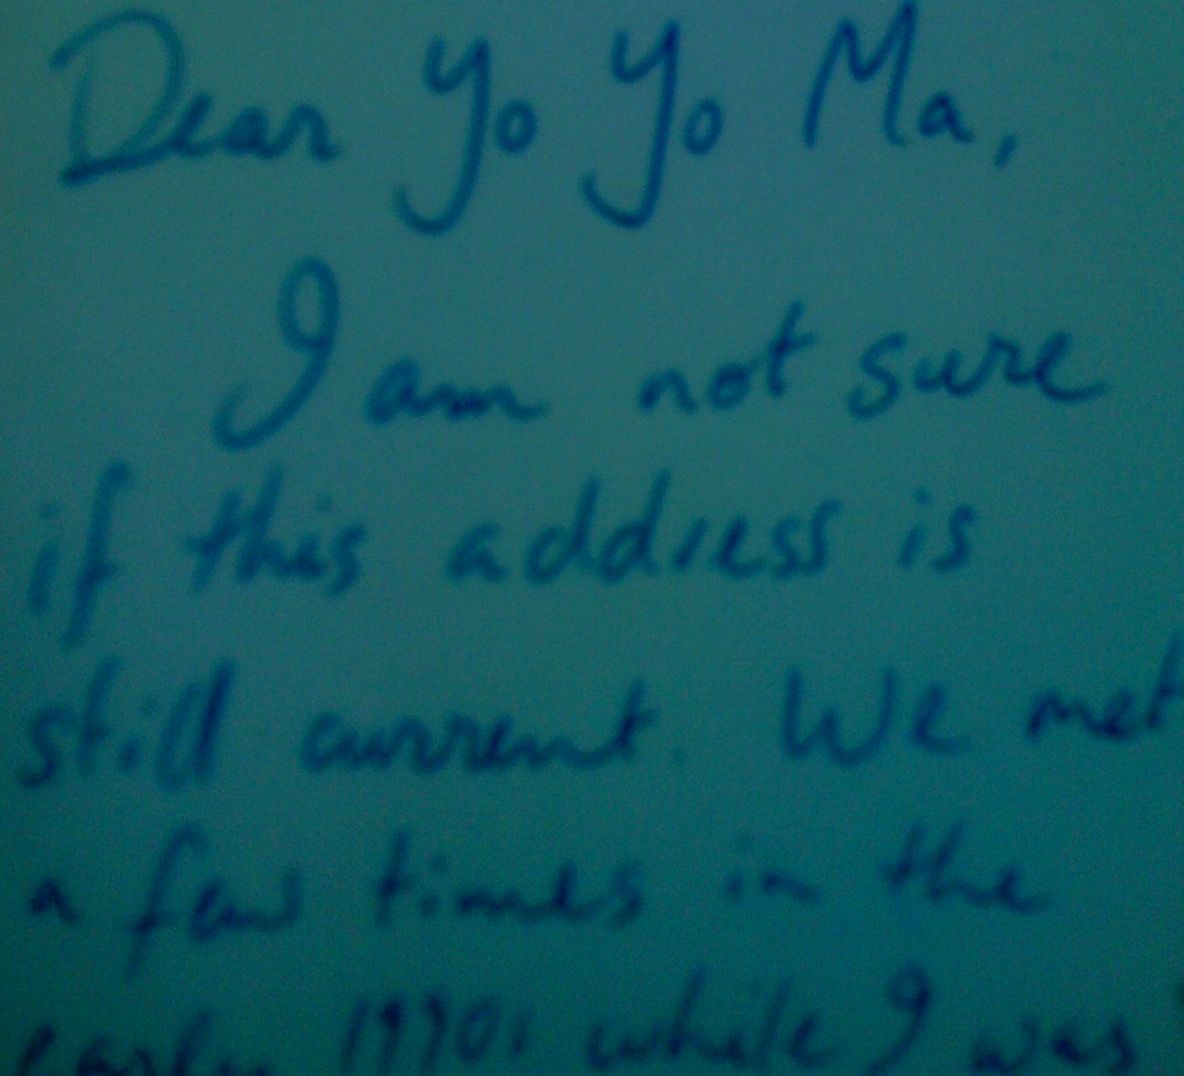 Dear Yo Yo Ma,
I am not sure
if this address is
still current. We met
a few times in the
early 1990s while I was